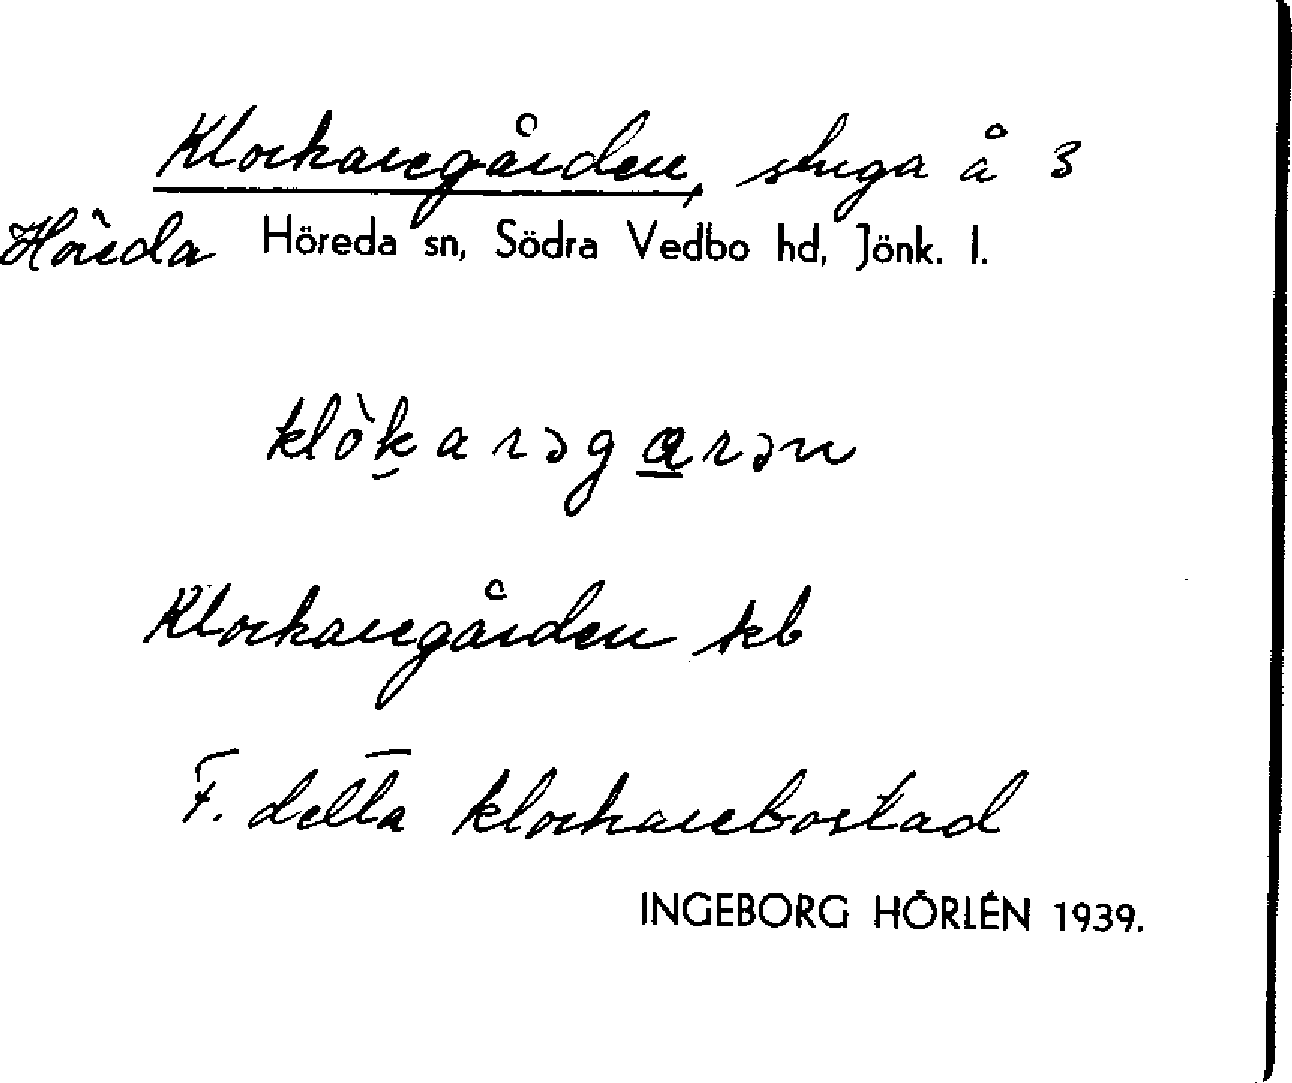 Klockaregården, stuga å 3
Höreda Höreda sn, Södra Vedbo hd, Jönk. l.
klòkarəgarən
Klockaregården kb
F. detta klockarebostad
INGEBORG HÖRLÉN 1939.